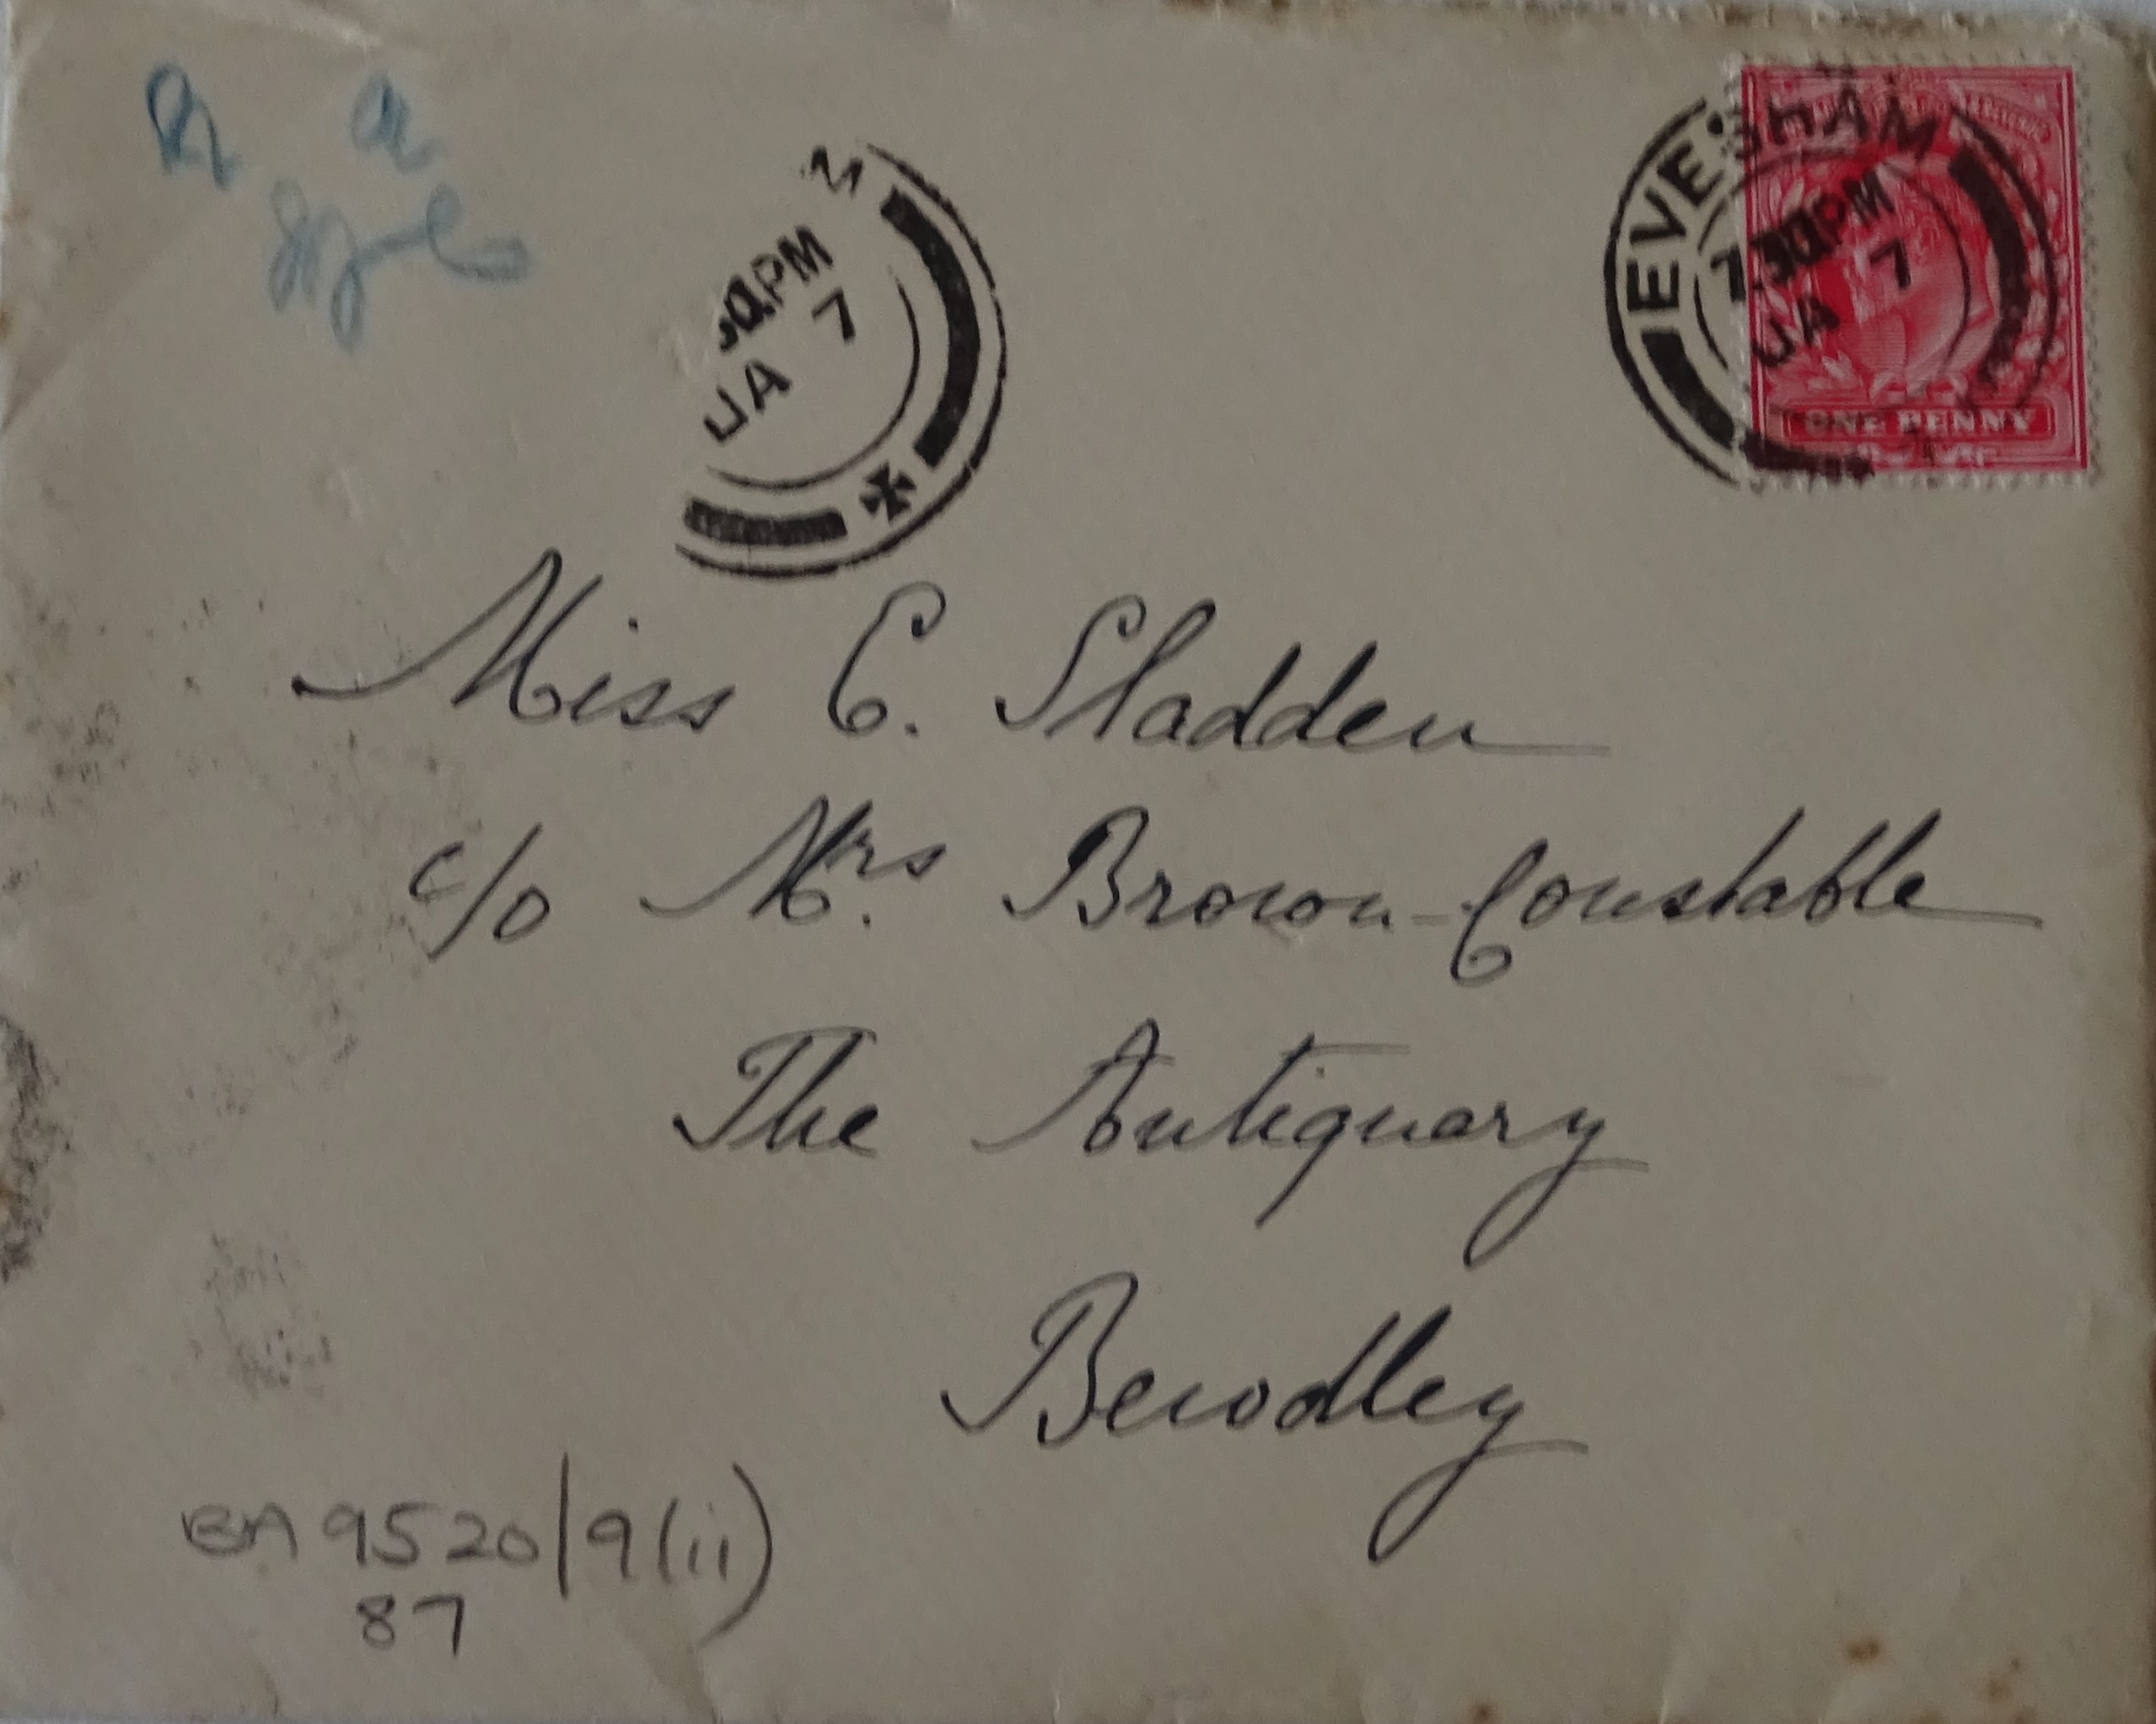 M
30PM
JA 7
EVESHAM
7.30PM
JA 7
ONE PENNY
Miss C. Sladden
c/o Mrs. Brown-Constable
The Antiquary
Bewdley
BA 9520/9(ii)
87